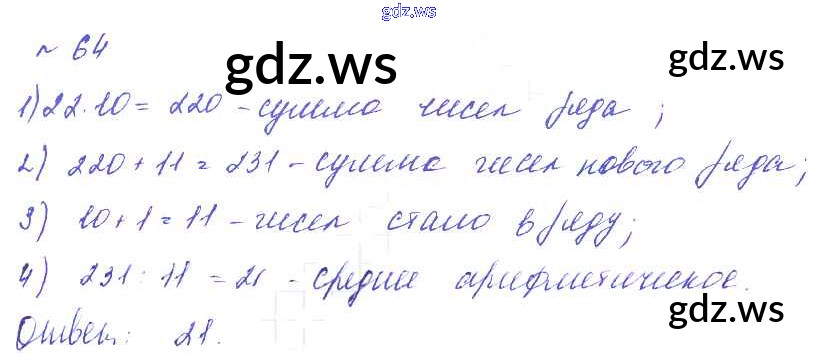 gdz.ws
№ 64
gdz.ws
gdz.ws
1) 22·10 = 220 - сумма чисел ряда ;
2) 220 + 11 = 231 - сумма чисел нового ряда;
3) 10 + 1 = 11 - чисел стало в ряду;
4) 231 : 11 = 21 - среднее арифметическое.
Ответ: 21.
gdz.ws